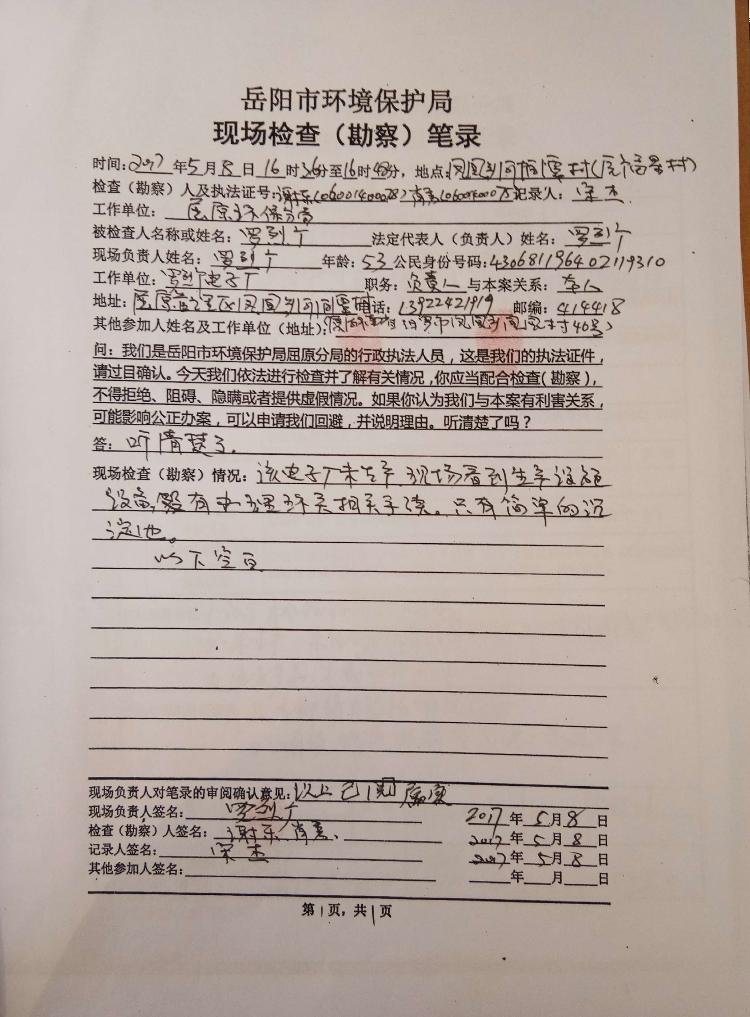 岳阳市环境保护局
现场检查（勘察）笔录
时间：2017年5月8日16时26分至16时48分，地点：凤凰乡河
检查（勘察）人及执法证号：谢东（06001400078）肖（060014000）记录人：宋杰
工作单位：屈原环保分局
被检查人名称或姓名：罗列个 法定代表人（负责人）姓名：罗列个
现场负责人姓名：罗列个 年龄：53 公民身份号码：430681196402119310
工作单位：罗列个电子厂 职务：负责人 与本案关系：本人
地址：屈原管理区凤凰乡河 电话：13922421919 邮编：414418
其他参加人姓名及工作单位（地址）：汨罗市凤凰乡村40号）
问：我们是岳阳市环境保护局屈原分局的行政执法人员，这是我们的执法证件，
请过目确认。今天我们依法进行检查并了解有关情况，你应当配合检查（勘察），
不得拒绝、阻碍、隐瞒或者提供虚假情况。如果你认为我们与本案有利害关系，
可能影响公正办案，可以申请我们回避，并说明理由。听清楚了吗？
答：听清楚了.
现场检查（勘察）情况：该电子厂未生产 现场看到生产设施
设备，没有办理环关相关手续。只有简单的沉
淀池。
以下空白
现场负责人对笔录的审阅确认意见：以上已阅属实
现场负责人签名：罗列个 2017年5月8日
检查（勘察）人签名：谢东 肖 2017年5月8日
记录人签名：宋杰 2017年5月8日
其他参加人签名： 年 月 日
第1页，共1页